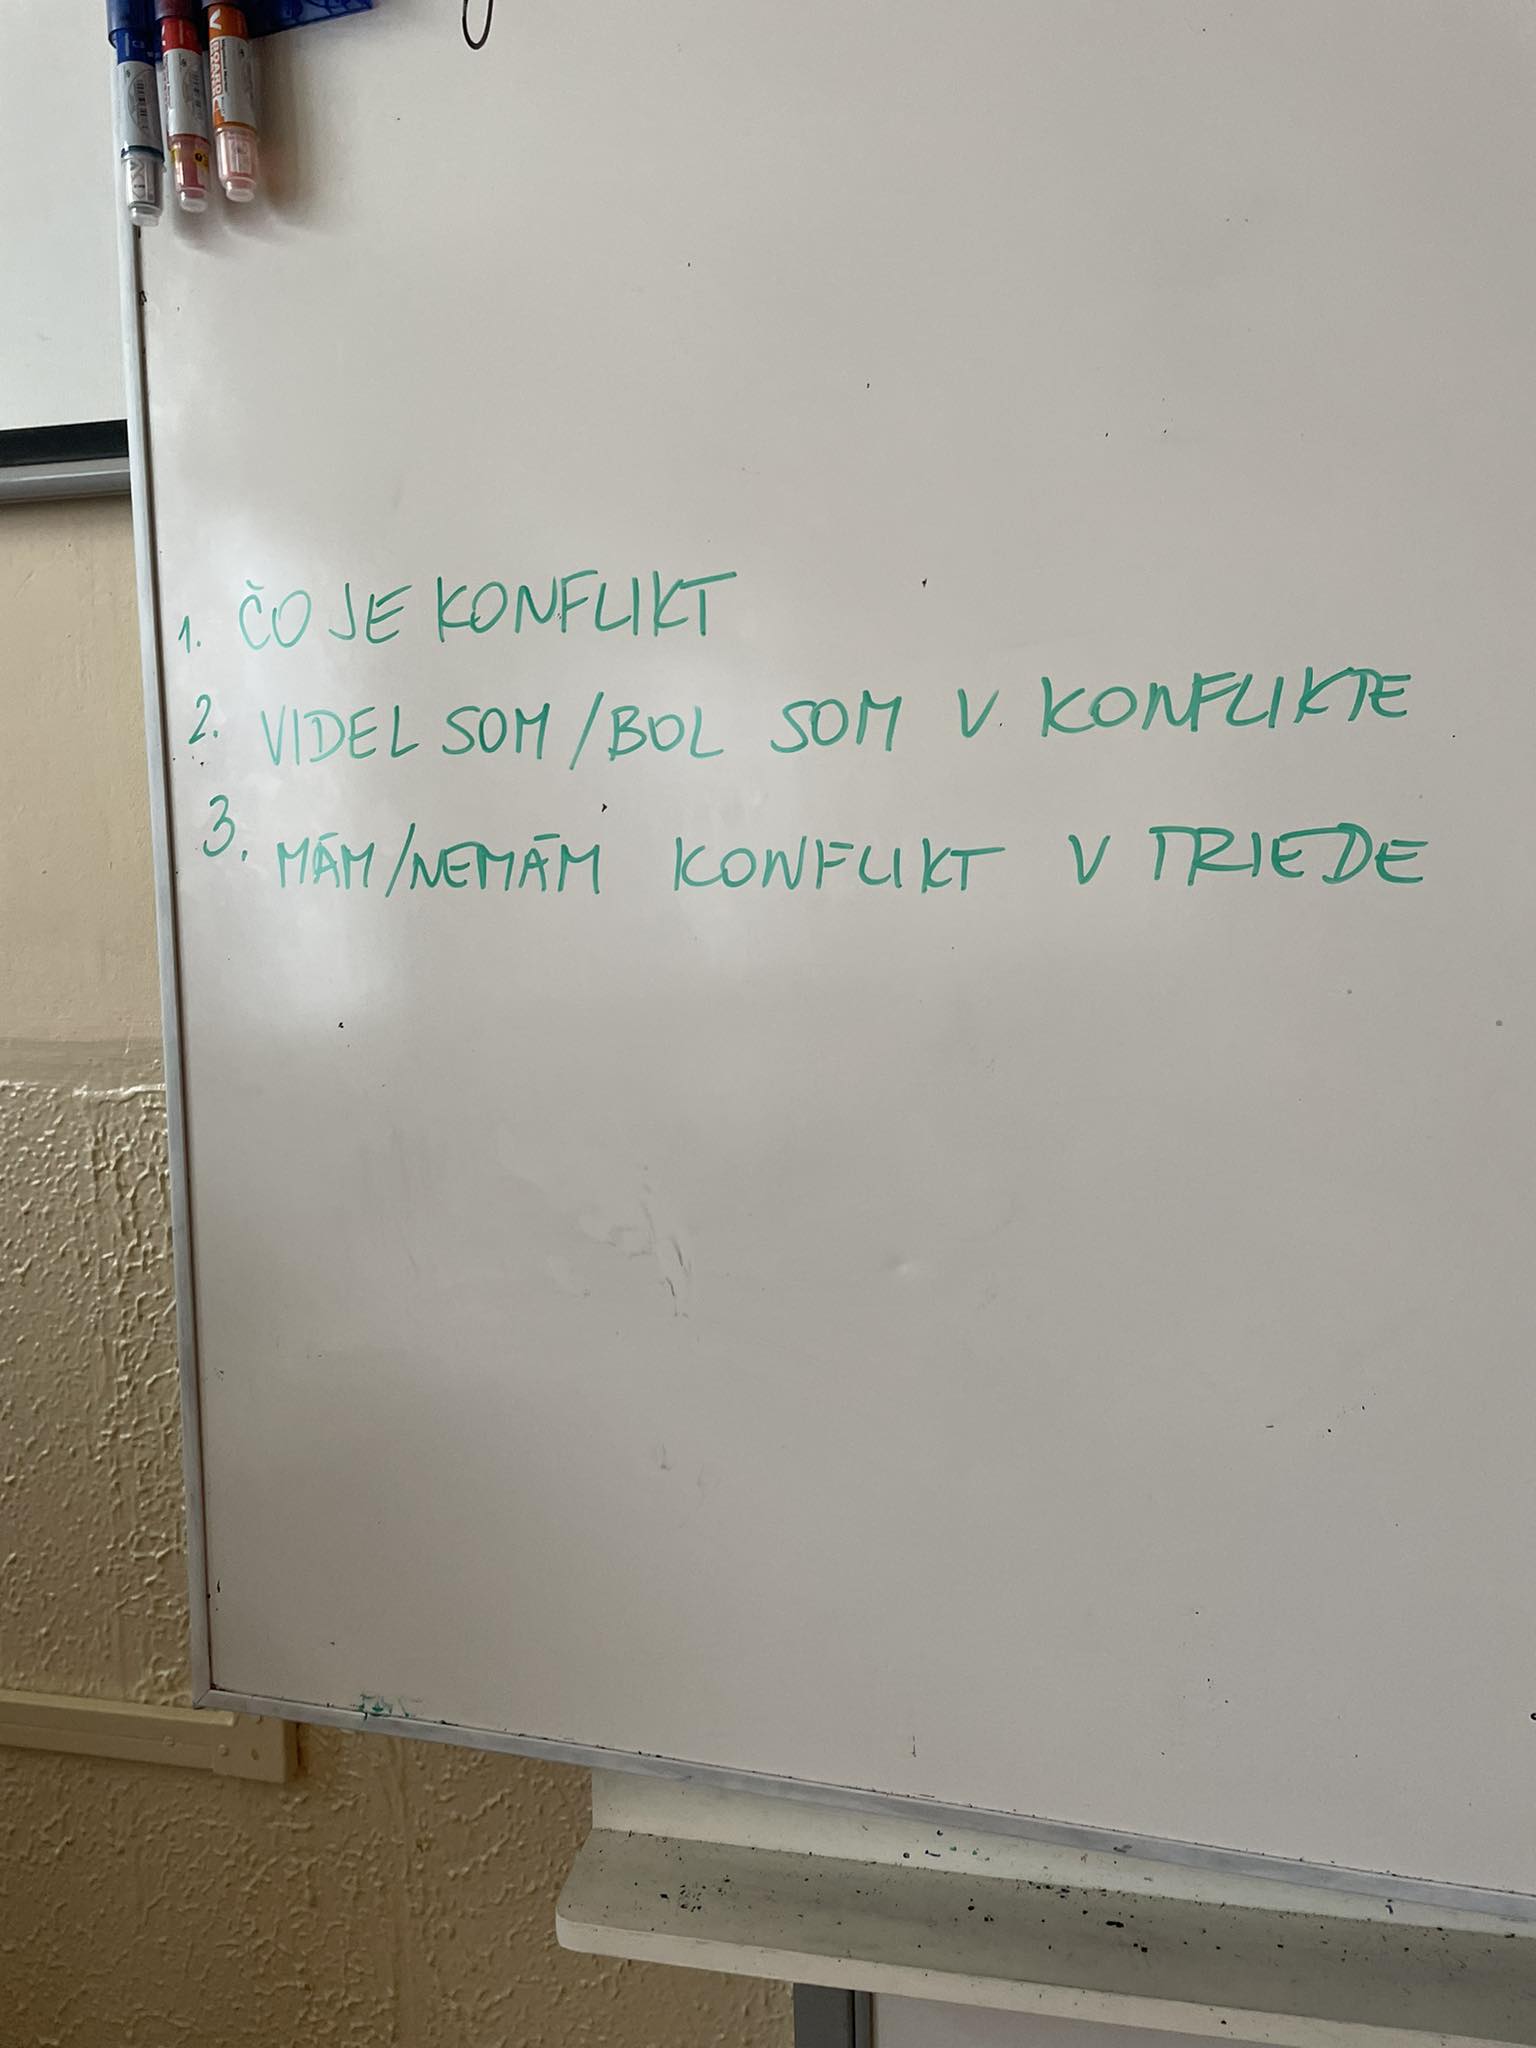 1. ČO JE KONFLIKT
2. VIDEL SOM/BOL SOM V KONFLIKTE
3. MÁM/NEMÁM KONFLIKT V TRIEDE
BOARD